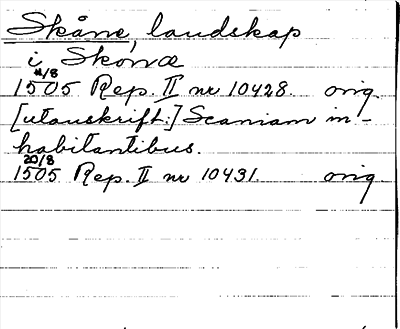 Skåne, landskap
i Skonæ
11/8
1505 Rep. II nr 10428. orig
[utanskrift:] Scaniam in-
habitantibus.
20/8
1505 Rep. II nr 10431. orig